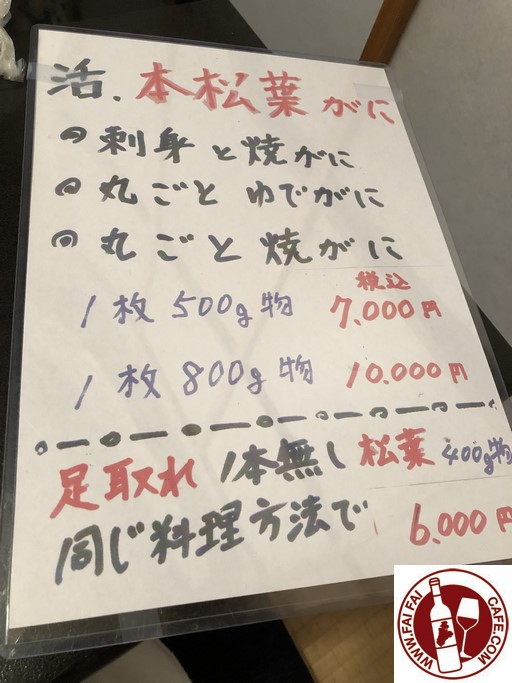 活.本松葉がに
の刺身と焼がに
の丸ごとゆでがに
の丸ごと焼がに
税込
1枚500g物 7,000円
1枚800g物 10.000円
足取れ1本無し松葉400g物
同じ料理方法で 6.000円
WWW.FAI FAI CAFE.COM